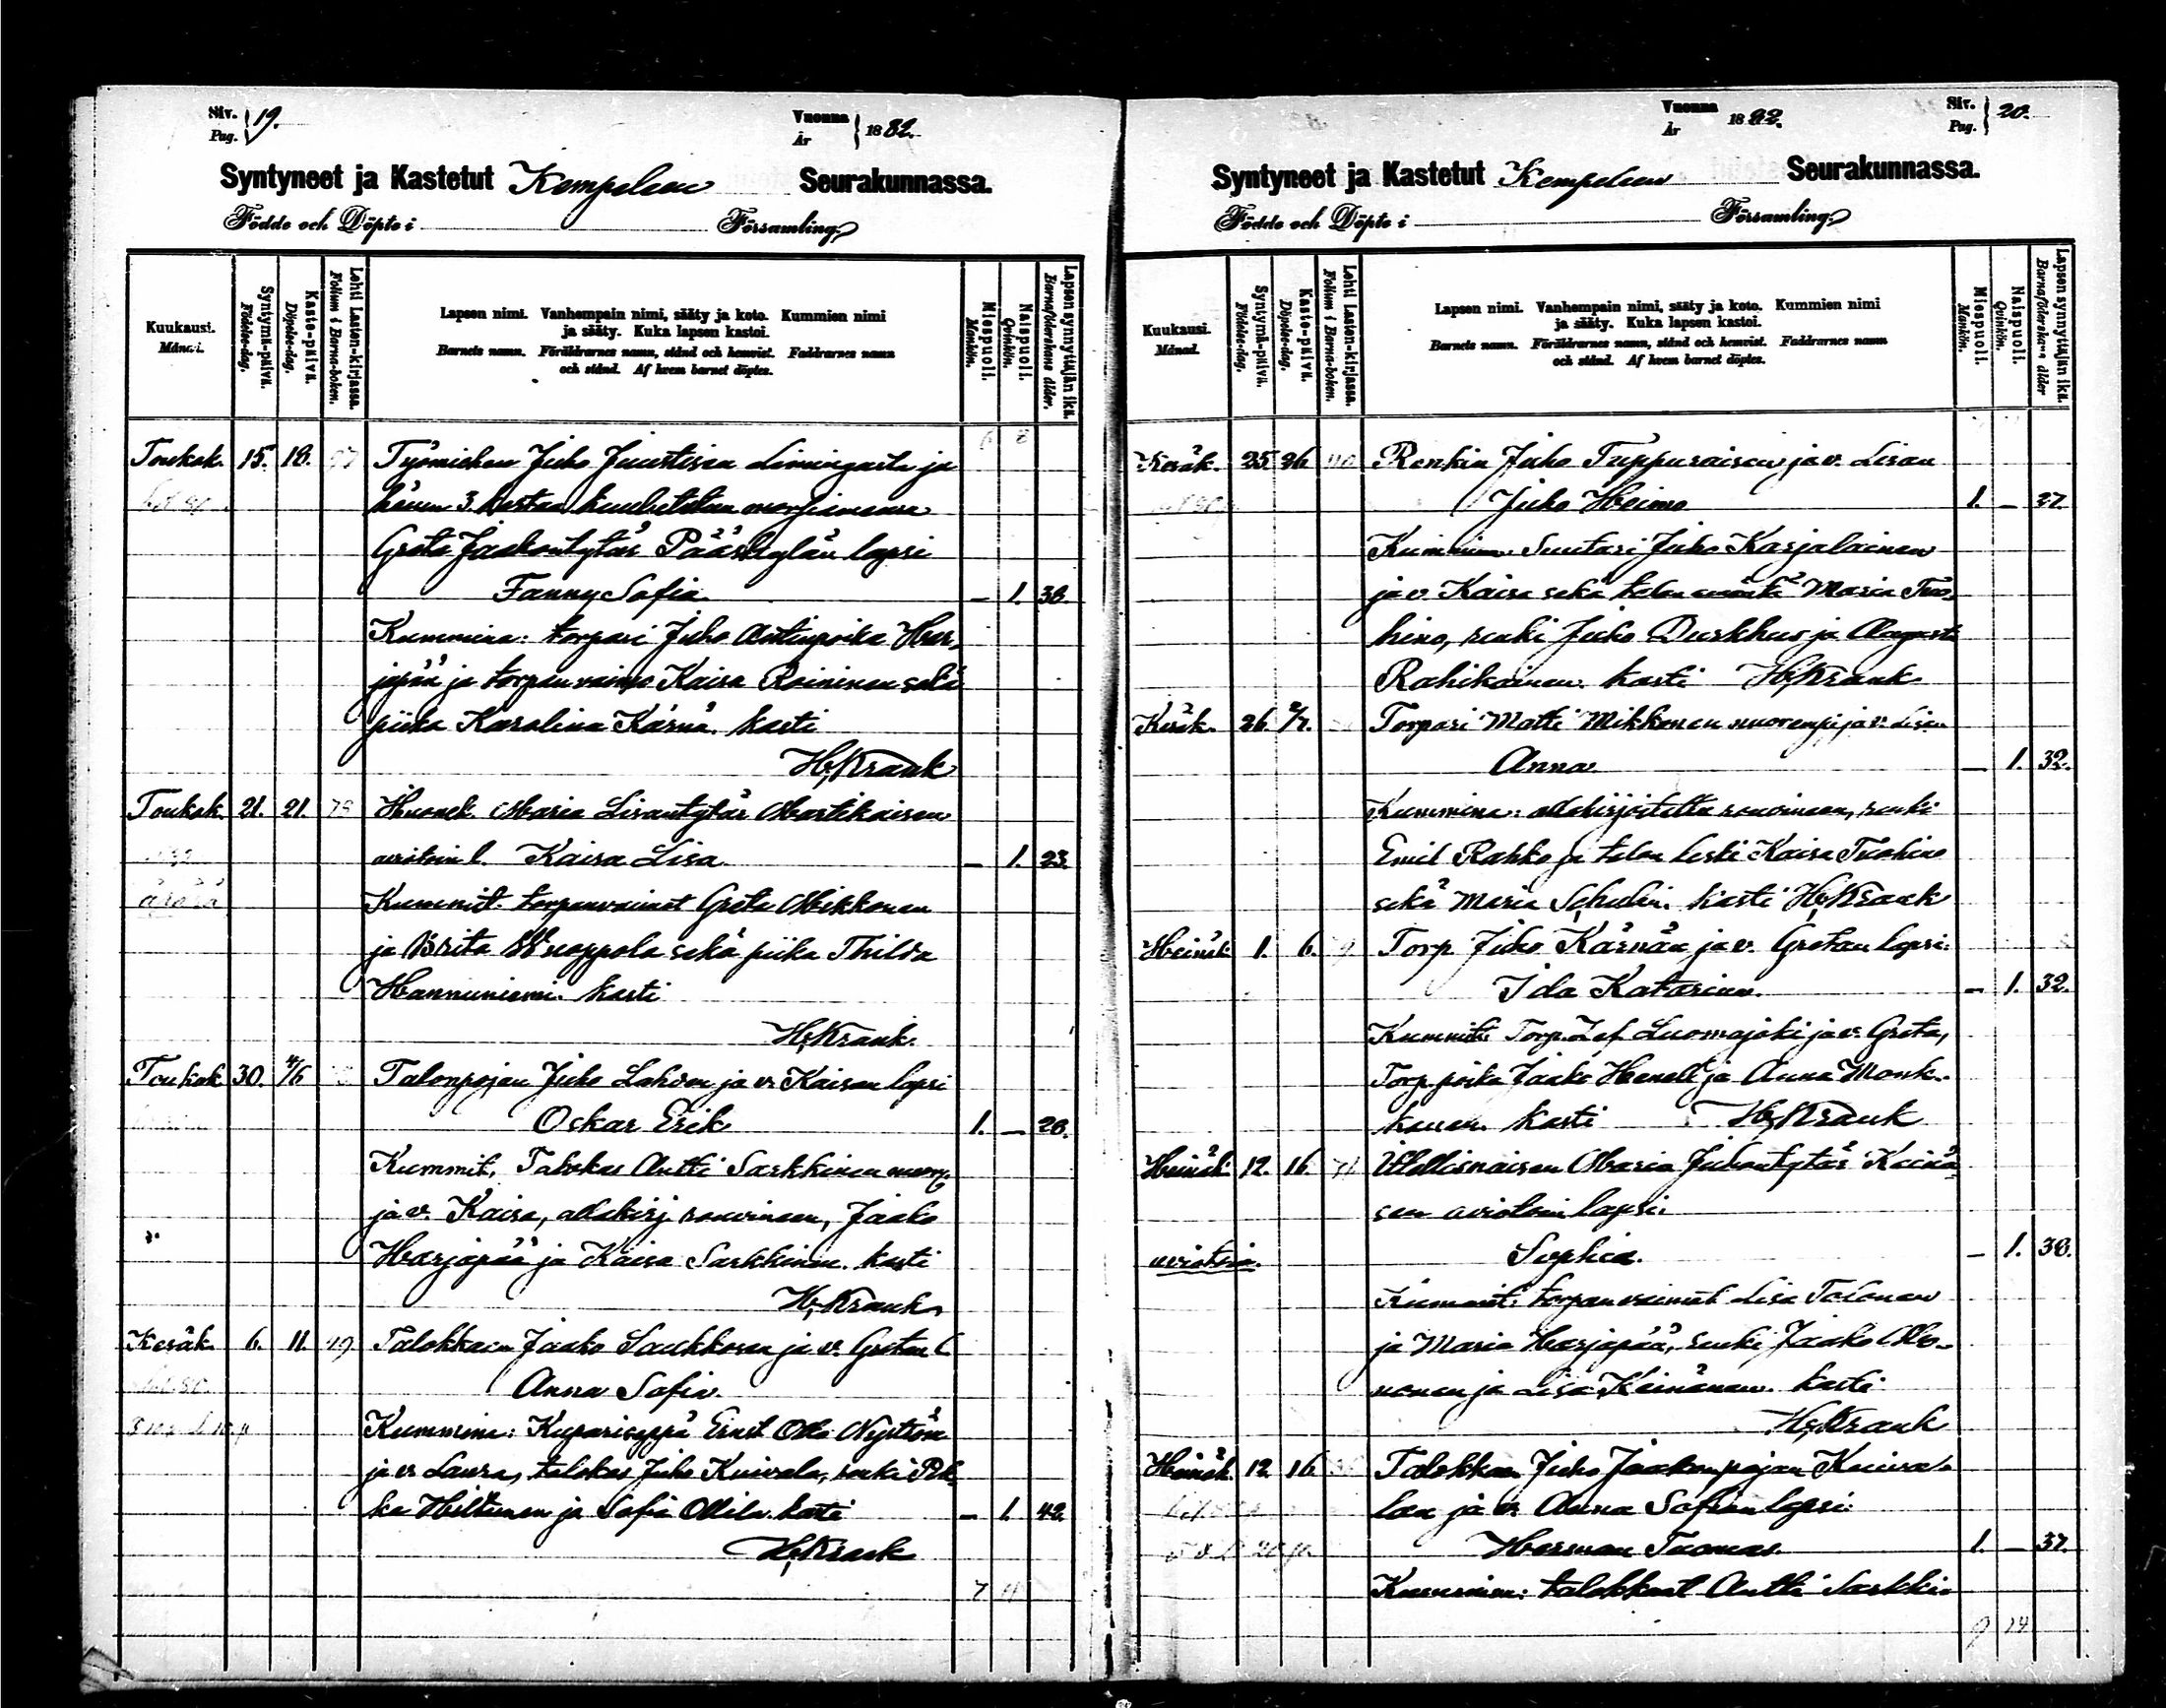 Siv. Pag. } 19.
Vuonna År } 1882.
Syntyneet ja Kastetut Kempeleen Seurakunnassa.
Födde och Döpte i Församling
Kuukausi. Månad.
Syntymä-päivä. Födelse-dag.
Kaste-päivä. Döpelse-dag.
Lehti Lasten-kirjassa. Folium i Barna-boken.
Lapsen nimi. Vanhempain nimi, sääty ja koto. Kummien nimi
ja sääty. Kuka lapsen kastoi.
Barnets namn. Föräldrarnes namn, stånd och hemvist. Faddrarnes namn
och stånd. Af hvem barnet döptes.
Miespuoli. Mankön.
Naispuoli. Qvinkön.
Lapsen synnyttäjän ikä. Barnaföderskans ålder.
Toukok. 15. 18. 97 Työmiehen Juho Juustisen Limingasta ja
hänen 3 kertaa kuulutetun morsiamensa
Greta Jaakontytär Pääskylän lapsi
Fanny Sofia — 1. 38.
Kummina: torpari Juho Antinpoika Har-
japää ja torpan vaimo Kaisa Roininen sekä
piika Karolina Kärnä. kasti
H. Krank
Toukok. 21. 21. 78 Huonek. Maria Lisantytär Martikaisen
aviotoin l. Kaisa Lisa — 1. 23.
Kummit. torpanvaimot Greta Mikkonen
ja Brita Nuoppola sekä piika Thilda
Hannuniemi. kasti
H. Krank.
Toukok. 30. 4/6 Talonpojan Juho Lahden ja v. Kaisan lapsi
Oskar Erik 1. — 28.
Kummit, Talokas Antti Sarkkinen nuor.
ja v. Kaisa, allekirj. rouvineen, Jaako
Harjapää ja Kaisa Sarkkinen. kasti
H. Krank
Kesäk. 6. 11. 49 Talokkaan Jaako Saukkosen ja v. Gretan l.
Anna Sofia.
Kummina: Kupariseppä Ernst Otto Nyström
ja v. Laura, talokas Juho Kuivala, renki Pek-
ka Hiltunen ja Sofia Ollila. kasti — 1. 42.
H. Krank
7 11
Vuonna År 1882.
Siv. Pag. } 20.
Syntyneet ja Kastetut Kempeleen Seurakunnassa.
Födde och Döpte i Församling
Kuukausi. Månad.
Syntymä-päivä. Födelse-dag.
Kaste-päivä. Döpelse-dag.
Lehti Lasten-kirjassa. Folium i Barna-boken.
Lapsen nimi. Vanhempain nimi, sääty ja koto. Kummien nimi
ja sääty. Kuka lapsen kastoi.
Barnets namn. Föräldrarnes namn, stånd och hemvist. Faddrarnes namn
och stånd. Af hvem barnet döptes.
Miespuoli. Mankön.
Naispuoli. Qvinkön.
Lapsen synnyttäjän ikä. Barnaföderskans ålder
Kesäk. 25. 26 Renkin Juho Tuppuraisen ja v. Lisan
Juho Heimo 1. — 27.
Kummina Suutari Juho Karjalainen
ja v. Kaisa sekä talon emäntä Maria Tuo-
hino, renki Juho Durkhus ja Augusta
Rahikainen. kasti H. Krank
Kesäk. 26. 2/7. Torpari Matti Mikkonen nuorempi ja v. Lisan
Anna — 1. 32.
Kummina: allekirjoitettu rouvineen, renki
Emil Rahko ja talon leski Kaisa Tuohino
sekä Maria Schulin. kasti H. Krank
Heinäk. 1. 6. Torp Juho Kärnän ja v. Gretan lapsi:
Ida Katarina. — 1. 32.
Kummit: Torp. Zef. Luomajoki ja v. Greta,
Torp. poika Jaako Henell ja Anna Monk-
konen. kasti H. Krank
Heinäk. 12. 16. 71 Itsellisnaisen Maria Juhontytär Keinä-
sen aviotoin lapsi.
aviotoin. Sophia. — 1. 38.
Kummit: torpanvaimot Lisa Tolonen
ja Maria Harjapää, renki Jaako Mo-
nonen ja Lisa Keinänen. kasti
H. Krank
Heinäk. 12 16. Talokkaan Juho Jaakonpojan Kuiva-
lan ja v. Anna Sofian lapsi:
Herman Tuomas. 1. — 37.
Kummina: talokkaat Antti Sarkki-
9 14